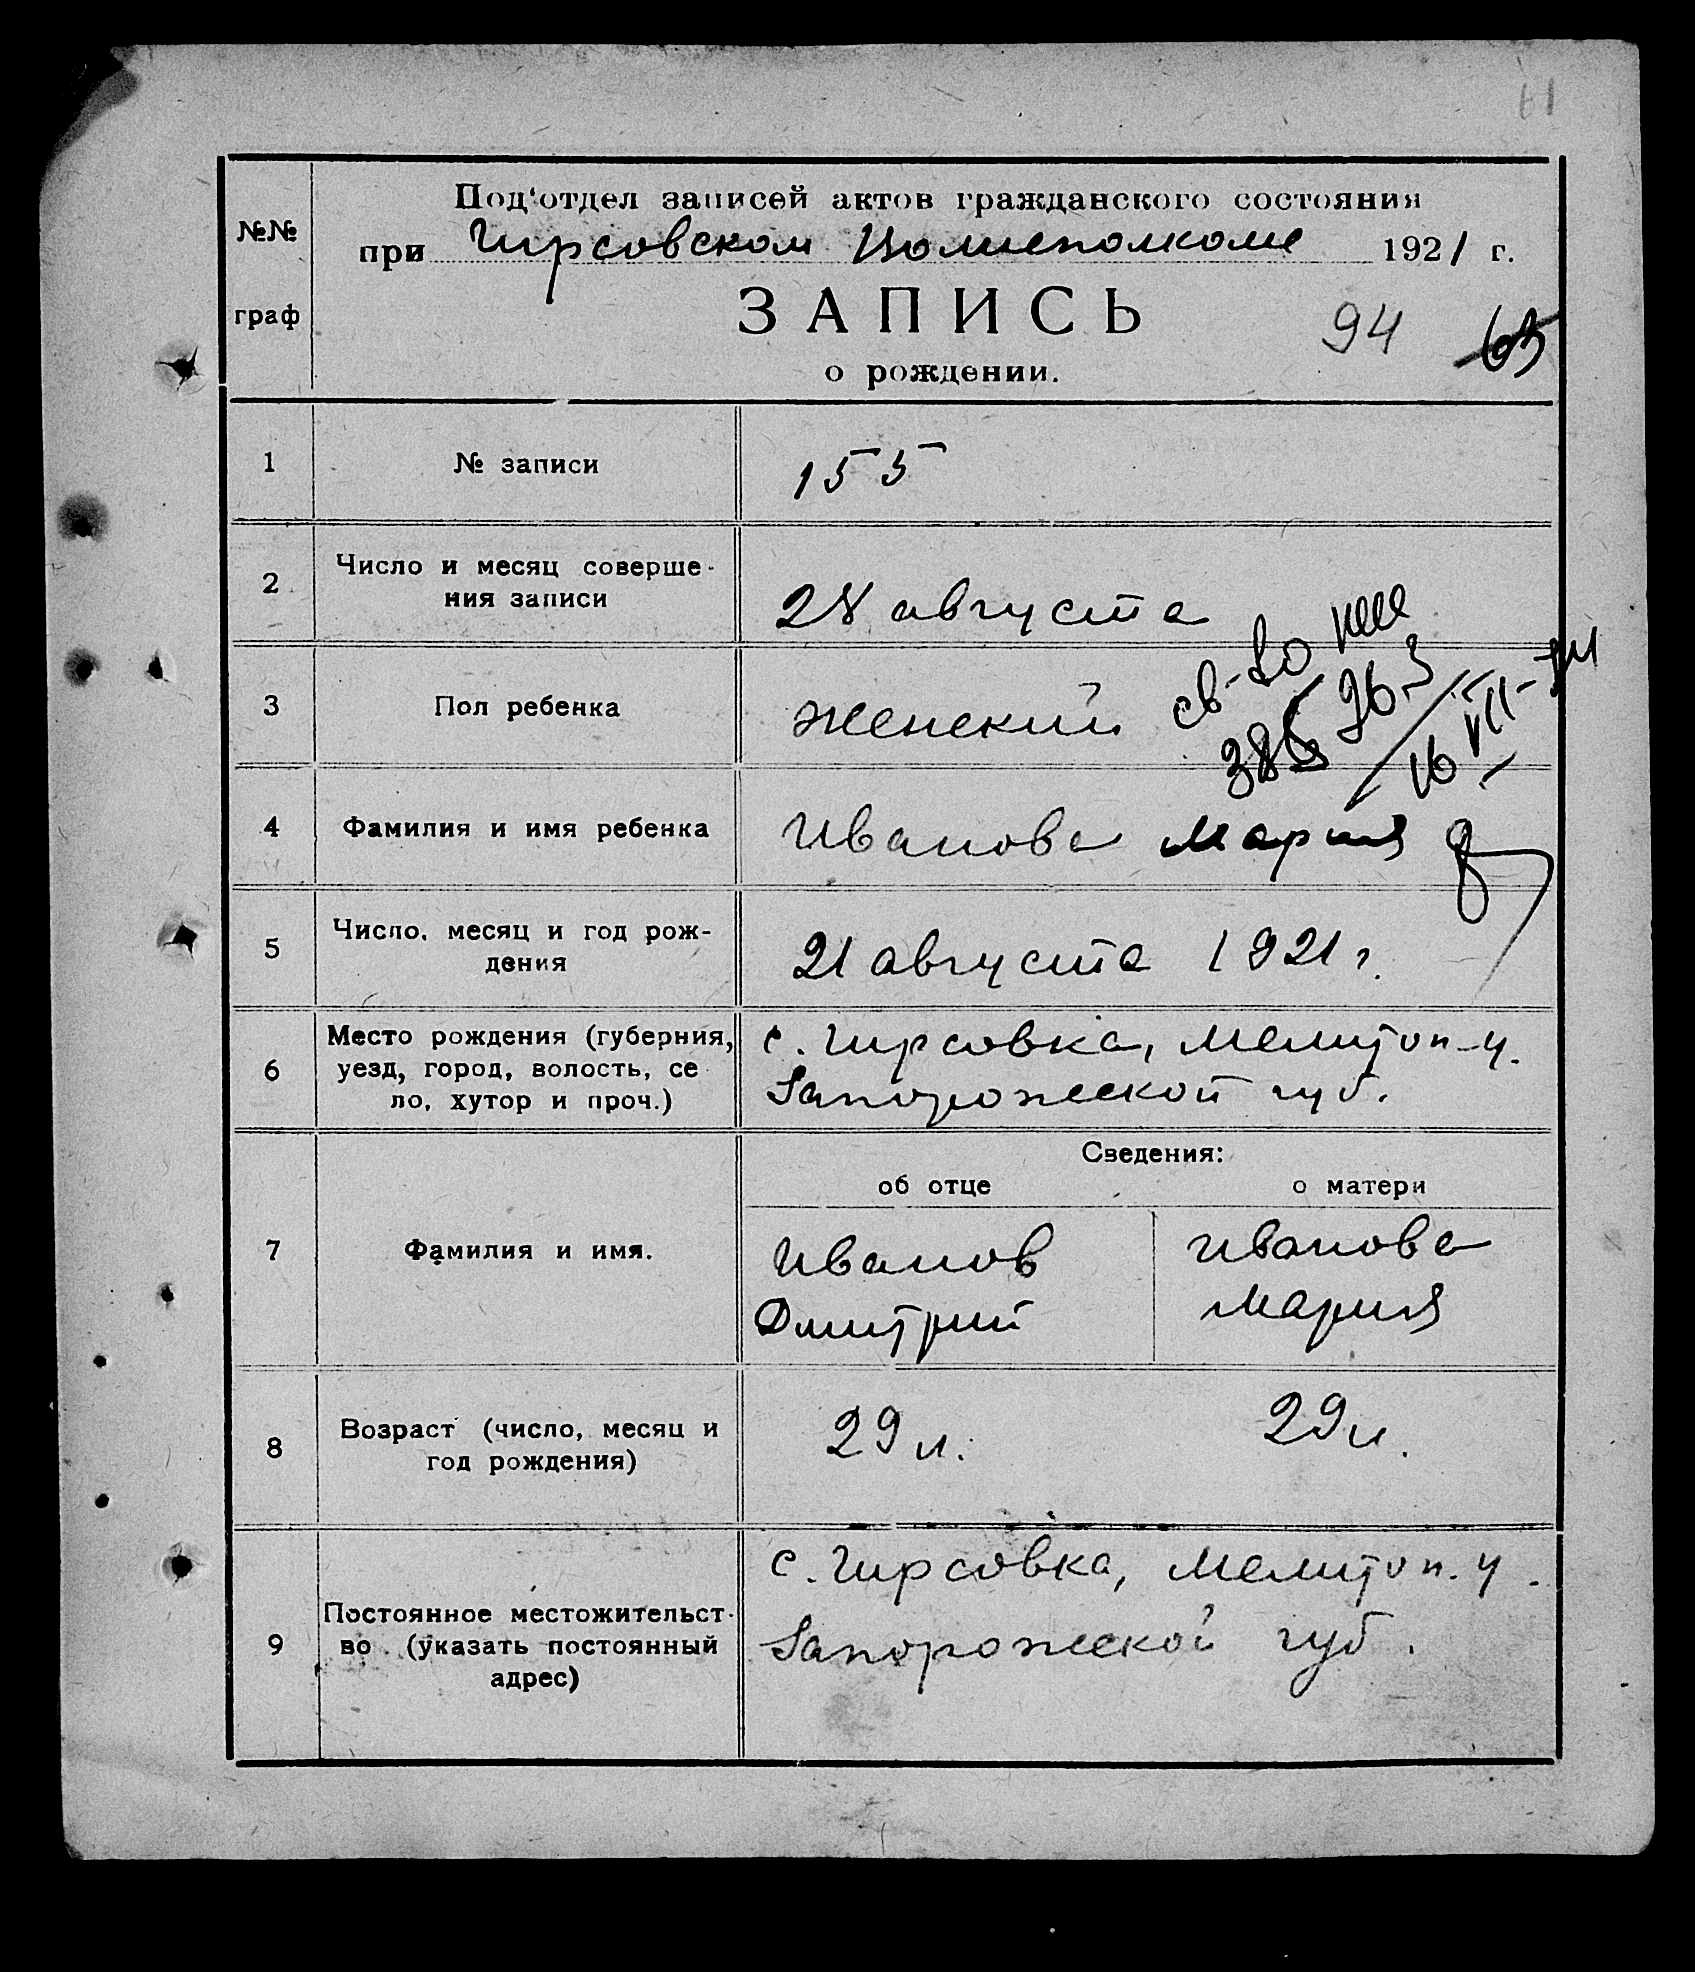 №№ граф
Под'отдел записей актов гражданского состояния
при Гирсовском Волисполкоме 1921 г.
ЗАПИСЬ
94 63
о рождении.
1 № записи 155
2 Число и месяц соверше-
ния записи 28 августа
3 Пол ребенка женский
св-во
16 VII-
4 Фамилия и имя ребенка Иванова Мария
5 Число, месяц и год рож-
дения 21 августа 1921 г.
6 Место рождения (губерния, с. Гирсовка, Мелитоп. у.
уезд, город, волость, се
ло, хутор и проч.) Запорожской губ.
Сведения:
об отце о матери
7 Фамилия и имя. Иванов Иванова
Дмитрий Мария
8 Возраст (число, месяц и
год рождения) 29 л. 29 л.
9 Постоянное местожительст-
во (указать постоянный
адрес)
с. Гирсовка, Мелитоп. у.
Запорожской губ.